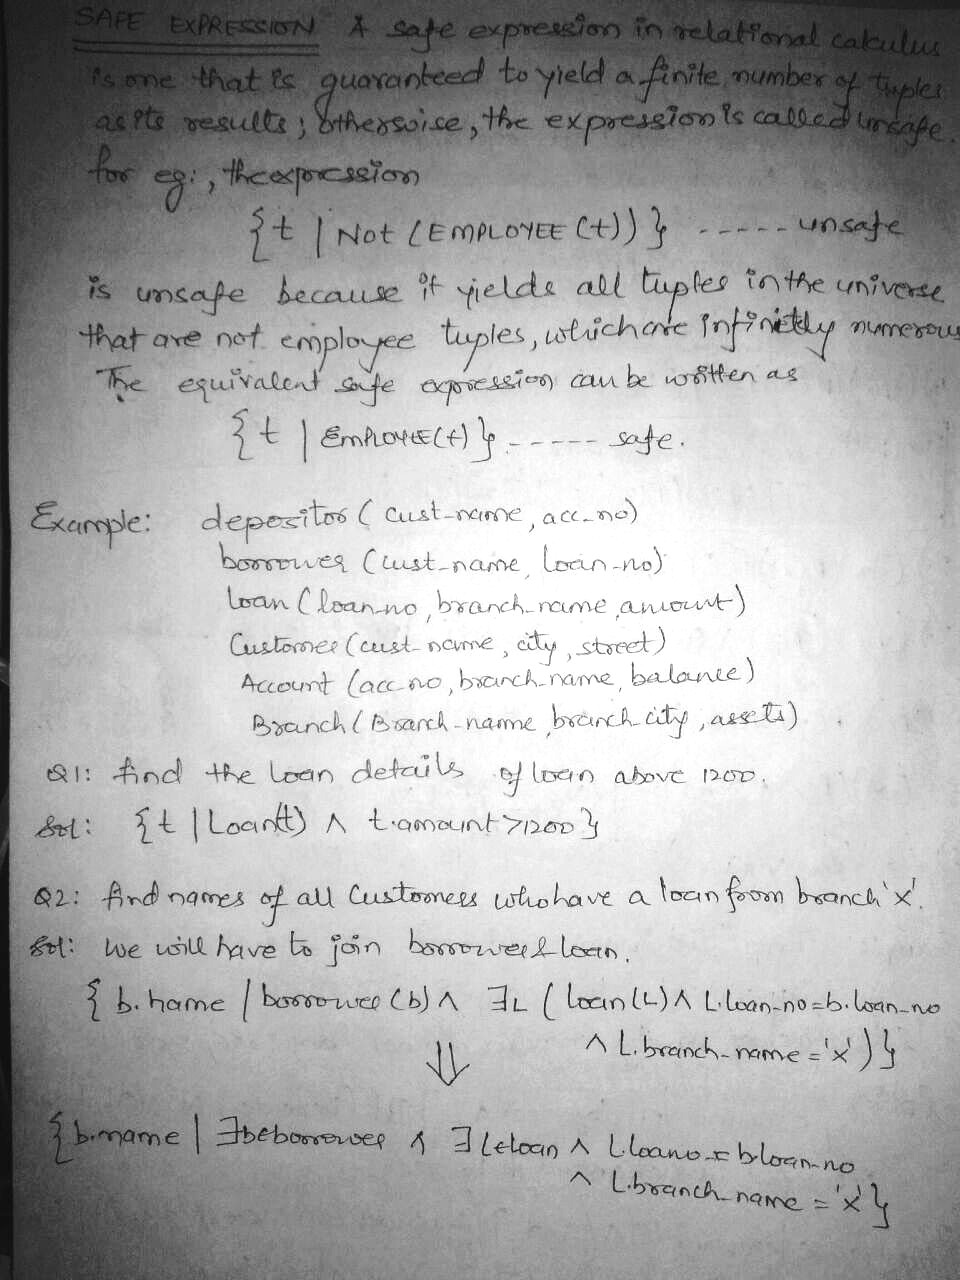 SAFE EXPRESSION A safe expression in relational calculus
is one that is guaranteed to yield a finite number of tuples
as its results; otherwise, the expression is called unsafe.
for eg:, the expression
{t | NOT (EMPLOYEE (t))} ----- unsafe
is unsafe because it yields all tuples in the universe
that are not employee tuples, which are infinitely numerous
The equivalent safe expression can be written as
{t | EMPLOYEE(t)} ----- safe.
Example: depositor (cust-name, acc-no)
borrower (cust-name, loan-no)
loan (loan-no, branch-name, amount)
Customer (cust-name, city, street)
Account (acc-no, branch-name, balance)
Branch (Branch-name, branch-city, assets)
Q1: find the loan details of loan above 1200.
Sol: {t | Loan(t) ∧ t.amount >1200}
Q2: find names of all Customers who have a loan from branch 'x'.
Sol: We will have to join borrower & loan.
{ b.name | borrower (b) ∧ ∃L ( loan (L) ∧ L.loan-no=b.loan-no
∧ L.branch-name = 'x' ) }
⇓
{b.name | ∃b∈borrower ∧ ∃L∈loan ∧ L.loano = b.loan-no
∧ L.branch-name = 'x'}